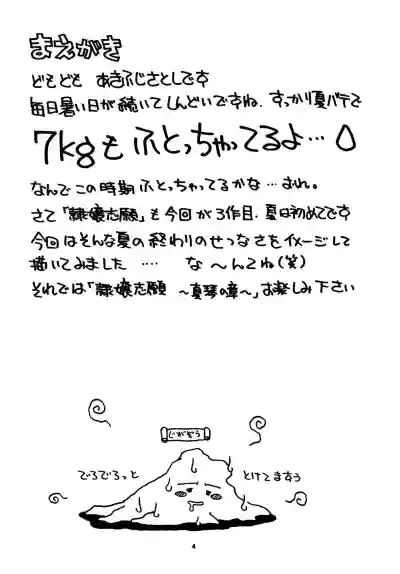 まえがき
どもども あきふじさとしです
毎日暑い日が続いてしんどいですね、すっかり夏バテで
7kgもふとっちゃってるよ…
なんでこの時期ふとっちゃってるかな…おれ。
さて「隷嬢志願」も今回が3作目、夏は初めてです
今回はそんな夏の終わりのせつなさをイメージして
描いてみました…… な〜んてね(笑)
それでは「隷嬢志願 〜真琴の章〜」お楽しみ下さい
じがぞう
でろでろっと
とけてますう
4